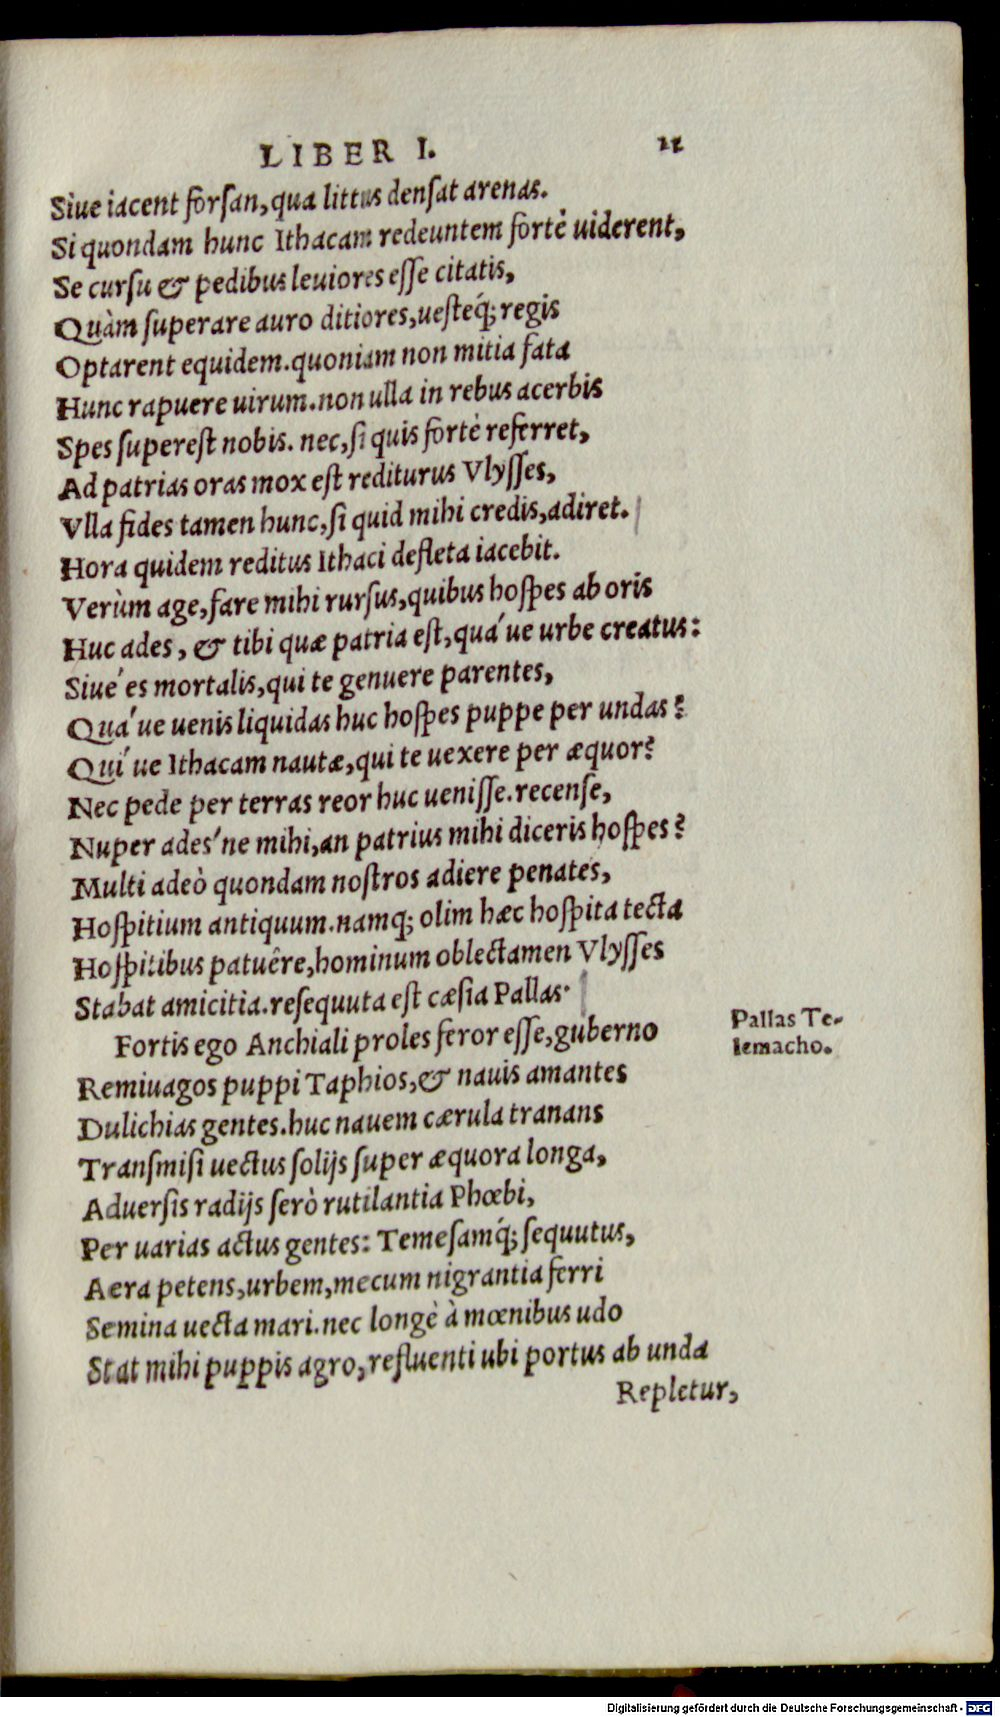 LIBER I. 11
Siue iacent forsan, qua littus densat arenas.
Si quondam hunc Ithacam redeuntem fortè uiderent,
Se cursu & pedibus leuiores esse citatis,
Quàm superare auro ditiores, uesteq́; regis
Optarent equidem. quoniam non mitia fata
Hunc rapuere uirum. non ulla in rebus acerbis
Spes superest nobis. nec, si quis fortè referret,
Ad patrias oras mox est rediturus Vlysses,
Vlla fides tamen hunc, si quid mihi credis, adiret.
Hora quidem reditus Ithaci defleta iacebit.
Verùm age, fare mihi rursus, quibus hospes ab oris
Huc ades, & tibi quæ patria est, quá ue urbe creatus:
Siué es mortalis, qui te genuere parentes,
Quá ue uenis liquidas huc hospes puppe per undas?
Quí ue Ithacam nautæ, qui te uexere per æquor?
Nec pede per terras reor huc uenisse. recense,
Nuper ades´ne mihi, an patrius mihi diceris hospes?
Multi adeò quondam nostros adiere penates,
Hospitium antiquum. namq; olim hæc hospita tecta
Hospitibus patuêre, hominum oblectamen Vlysses
Stabat amicitia. resequuta est cæsia Pallas.
Fortis ego Anchiali proles feror esse, guberno
Pallas Te-
lemacho.
Remiuagos puppi Taphios, & nauis amantes
Dulichias gentes. huc nauem cærula tranans
Transmisi uectus solijs super æquora longa,
Aduersis radijs serò rutilantia Phœbi,
Per uarias actus gentes: Temesamq́; sequutus,
Aera petens, urbem, mecum nigrantia ferri
Semina uecta mari. nec longè à mœnibus udo
Stat mihi puppis agro, refluenti ubi portus ab unda
Repletur,
Digitalisierung gefördert durch die Deutsche Forschungsgemeinschaft - DFG